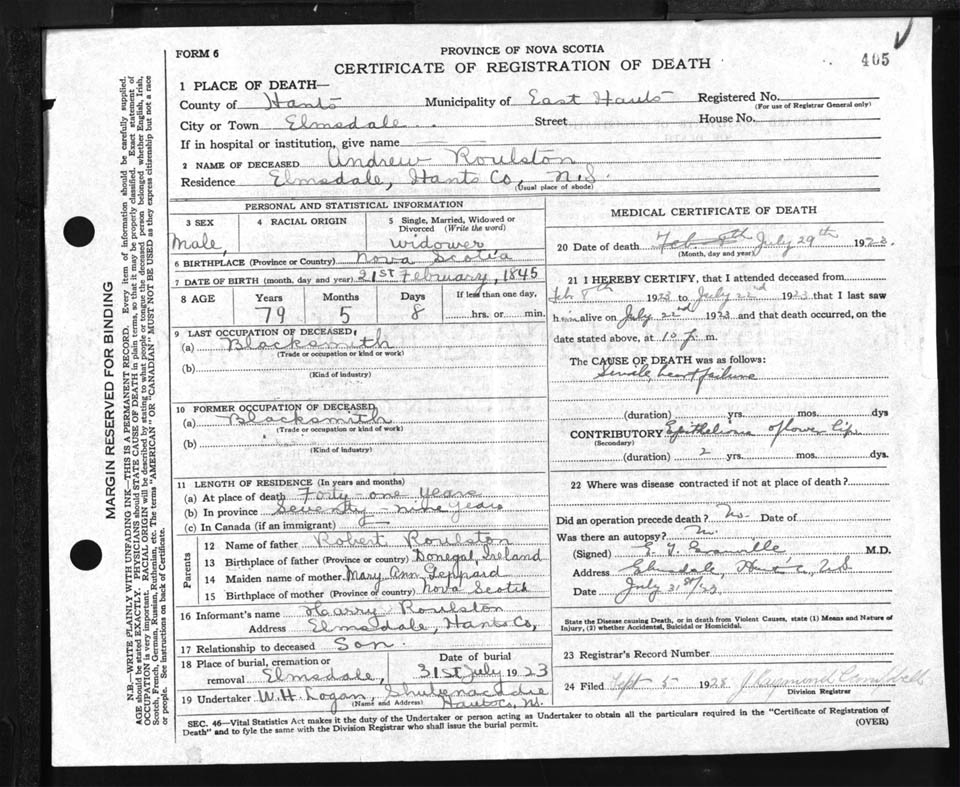 FORM 6
PROVINCE OF NOVA SCOTIA
CERTIFICATE OF REGISTRATION OF DEATH
405
1 PLACE OF DEATH—
County of Hants Municipality of East Hants Registered No.
(For use of Registrar General only)
City or Town Elmsdale Street House No.
If in hospital or institution, give name
2 NAME OF DECEASED Andrew Roulston
Residence Elmsdale, Hants Co, N.S.
(Usual place of abode)
PERSONAL AND STATISTICAL INFORMATION
3 SEX 4 RACIAL ORIGIN 5 Single, Married, Widowed or Divorced (Write the word)
Male, widower
6 BIRTHPLACE (Province or Country) Nova Scotia
7 DATE OF BIRTH (month, day and year) 21st February, 1845
8 AGE Years Months Days If less than one day,
79 5 8 hrs. or min.
9 LAST OCCUPATION OF DECEASED,
(a) Blacksmith
(Trade or occupation or kind or work)
(b)
(Kind of industry)
10 FORMER OCCUPATION OF DECEASED
(a) Blacksmith
(Trade or occupation or kind or work)
(b)
(Kind of industry)
11 LENGTH OF RESIDENCE (In years and months)
(a) At place of death Forty-one years
(b) In province Seventy-nine years
(c) In Canada (if an immigrant)
Parents
12 Name of father Robert Roulston
13 Birthplace of father (Province or country) Donegal, Ireland
14 Maiden name of mother Mary Ann Leppard
15 Birthplace of mother (Province or country) Nova Scotia
16 Informant's name Harry Roulston
Address Elmsdale, Hants Co,
17 Relationship to deceased Son.
18 Place of burial, cremation or removal Elmsdale, Date of burial 31st July 1923
19 Undertaker W. H. Logan, Shubenacadie
(Name and Address) Hants Co, N.S.
MEDICAL CERTIFICATE OF DEATH
20 Date of death Feb 8th July 29th 1923.
(Month, day and year)
21 I HEREBY CERTIFY, that I attended deceased from
Feb 8th 1923 to July 22nd 1923 that I last saw
him alive on July 22nd 1923 and that death occurred, on the
date stated above, at 10 p. m.
The CAUSE OF DEATH was as follows:
Senile, heart failure
(duration) yrs. mos. dys
CONTRIBUTORY Epithelioma of lower lip.
(Secondary)
(duration) 2 yrs. mos. dys.
22 Where was disease contracted if not at place of death?
Did an operation precede death? No. Date of
Was there an autopsy? No.
(Signed) Granville M.D.
Address Elmsdale, Hants Co, N.S.
Date July 31st/23.
State the Disease causing Death, or in death from Violent Causes, state (1) Means and Nature of
Injury, (2) whether Accidental, Suicidal or Homicidal.
23 Registrar's Record Number
24 Filed Sept 5 1928 J. Raymond
Division Registrar
SEC. 46—Vital Statistics Act makes it the duty of the Undertaker or person acting as Undertaker to obtain all the particulars required in the "Certificate of Registration of
Death" and to fyle the same with the Division Registrar who shall issue the burial permit. (OVER)
MARGIN RESERVED FOR BINDING
N.B.—WRITE PLAINLY WITH UNFADING INK—THIS IS A PERMANENT RECORD. Every item of information should be carefully supplied.
AGE should be stated EXACTLY. PHYSICIANS should STATE CAUSE OF DEATH in plain terms, so that it may be properly classified. Exact statement of
OCCUPATION is very important. RACIAL ORIGIN will be described by stating to what people or tongue the deceased person belonged whether English, Irish,
Scotch, French, German, Russian, Ruthenian, etc. The terms "AMERICAN" or "CANADIAN" MUST NOT BE USED as they express citizenship but not a race
or people. See instructions on back of Certificate.